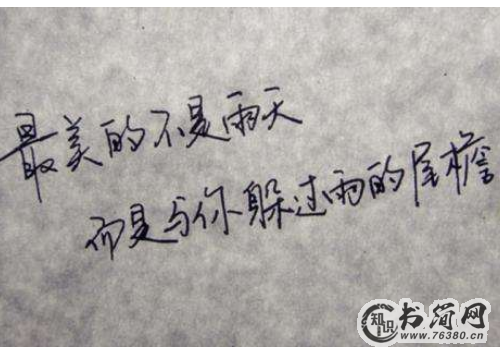 最美的不是雨天
而是与你躲过雨的屋檐
知识
书简网
www.76380.cn